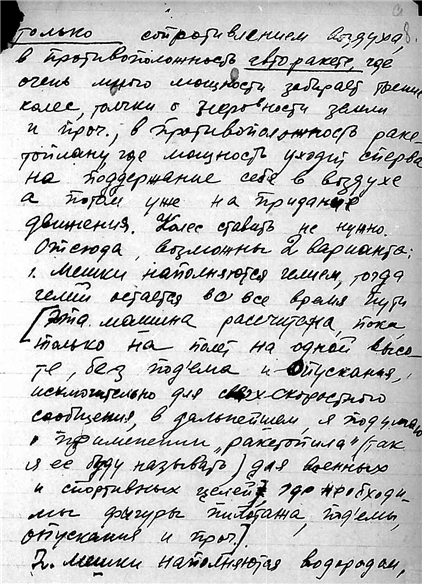 8
только сопротивлением воздуха,
в противоположность авторакете, где
очень много мощности забирает трение
колес, толчки о неровности земли
и проч., в противоположность раке-
топлану где мощность уходит сперва
на поддержание себя в воздухе
а потом уже на придание
движения. Колес ставить не нужно.
Отсюда, возможны 2 варианта:
1. Мешки наполняются гелием, тогда
гелий остается во все время пути
[Эта машина рассчитана, пока
только на полет на одной высо-
те, без под'ема и опускания,
исключительно для сверх-скоростного
сообщения, в дальнейшем, я подумаю
о применении „ракетопила" (так
я ее буду называть) для военных
и спортивных целей, где необходи-
мы фигуры пилотажа, под'емы,
опускания и проч.]
2. Мешки наполняются водородом,